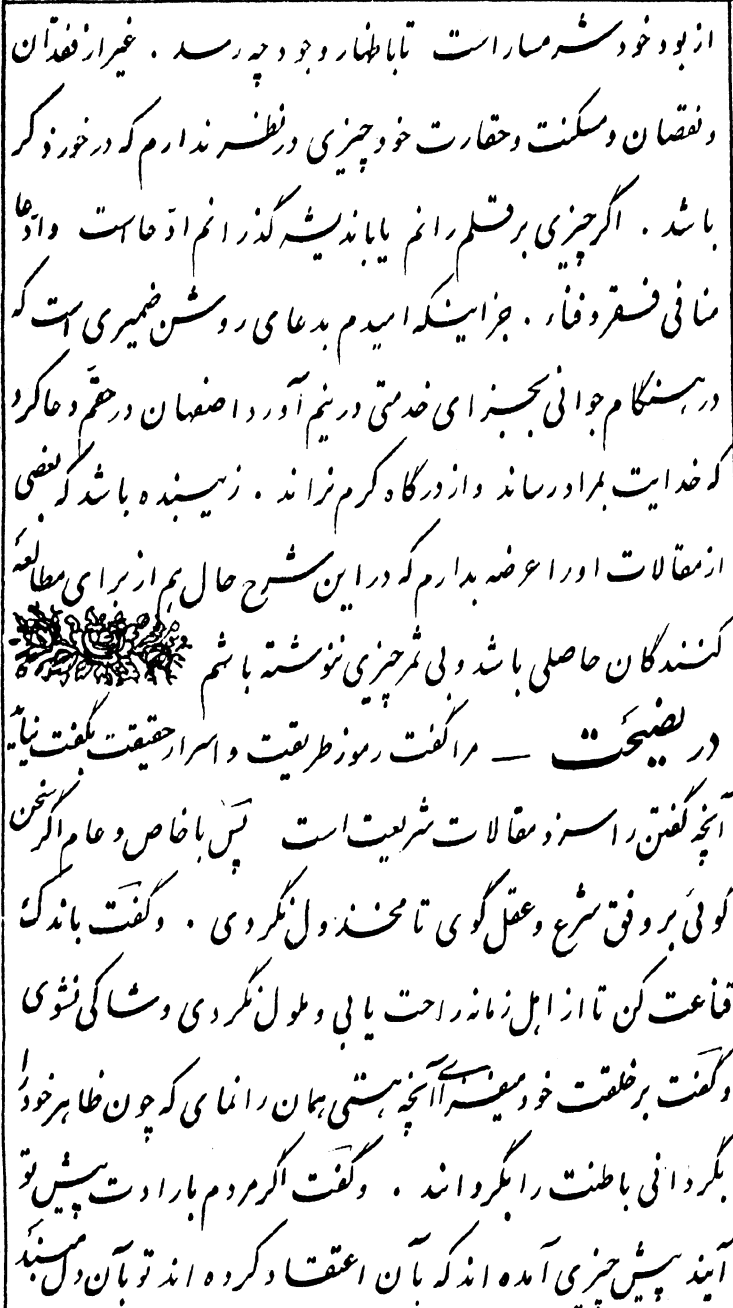 از بود خود شرمسار است تا باظهار وجود چه رسد . غیر از فقدان
و نقصان و مسکنت و حقارت خود چیزی در نظر ندارم که در خور ذکر
باشد . اگر چیزی بر قلم رانم یا باندیشه گذرانم ادّعا است و ادّعا
منافی فقر و فناء . جز اینکه امیدم بدعای روشن ضمیری است که
در هنگام جوانی بجزای خدمتی در نیم آورد اصفهان در حقّم دعا کرد
که خدایت بمراد رساند و از درگاه کرم نراند . زیبنده باشد که بعضی
از مقالات او را عرضه بدارم که در این شرح حال هم از برای مطالعه
کنندگان حاصلی باشد و بی ثمر چیزی ننوشته باشم
در نصیحت – مرا گفت رموز طریقت و اسرار حقیقت بگفت نیاید
آنچه گفتن را سزد مقالات شریعت است پس با خاص و عام اگر سخن
گوئی بر وفق شرع و عقل گوی تا مخذول نگردی . و گفت باندک
قناعت کن تا از اهل زمانه راحت یابی و ملول نگردی و شاکی نشوی
و گفت بر خلقت خود میفزای آنچه هستی همان را نمای که چون ظاهر خود را
بگردانی باطنت را بگردانند . و گفت اگر مردم بارادت پیش تو
آیند پیش چیزی آمده اند که بآن اعتقاد کرده اند تو بآن دل مبند